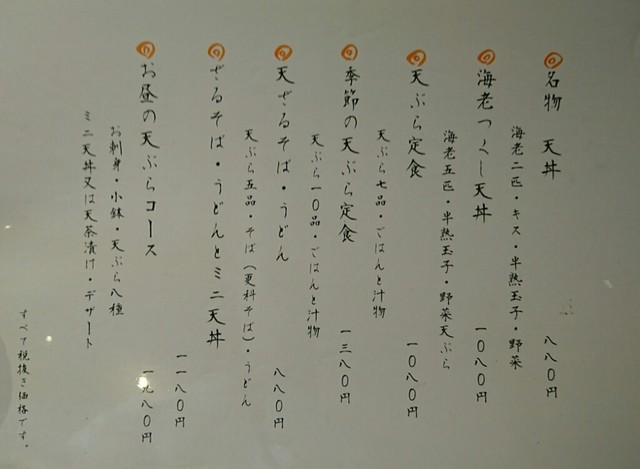 名物 天丼 八八〇円
海老二匹・キス・半熟玉子・野菜
海老づくし天丼 一〇八〇円
海老五匹・半熟玉子・野菜天ぷら
天ぷら定食 一〇八〇円
天ぷら七品・ごはんと汁物
季節の天ぷら定食 一三八〇円
天ぷら一〇品・ごはんと汁物
天ざるそば・うどん 八八〇円
天ぷら五品・そば(更科そば)・うどん
ざるそば・うどんとミニ天丼 一一八〇円
お昼の天ぷらコース 一九八〇円
お刺身・小鉢・天ぷら八種
ミニ天丼又は天茶漬け・デザート
すべて税抜き価格です。